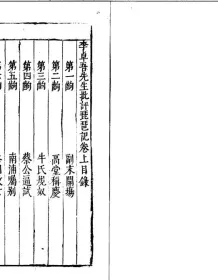 李卓吾先生批評琵琶記卷上目錄
第一齣 副末開場
第二齣 高堂稱慶
第三齣 牛氏規奴
第四齣 蔡公逼試
第五齣 南浦囑別